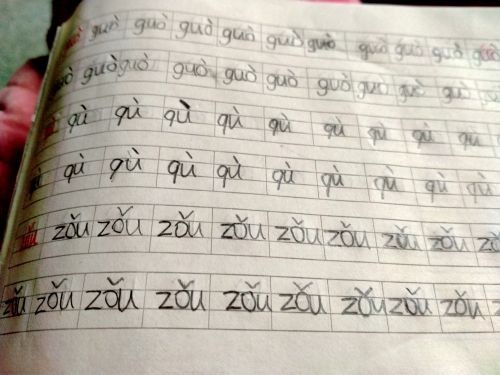 guò guò guò guò guò guò guò guò guò guò
guò guò guò guò guò guò guò guò gu guò
qù qù qù qù qù qù qù qù qù
qù qù qù qù qù qù qù qù qù qù
zǒu zǒu zǒu zǒu zǒu zǒu zǒu zǒu zǒu
zǒu zǒu zǒu zǒu zǒu zǒu zǒu zǒu zǒu